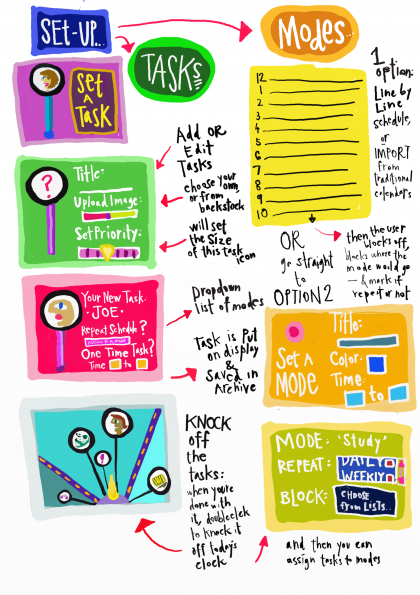 SET-UP..
TASKS
Modes..
Set
A
TASK
Title:
Upload Image:
Set Priority:
?
Add OR
Edit
Tasks
choose your own,
or from
backstock
will set
the Size
of this task
icon
Your New Task.
·JOE·
Repeat Schedule?
One Time Task?
Time to
Dropdown
list of modes
Task is Put
on display
&
Saved in
Archive
KNOCK
off
the
tasks:
when you're
done with
it, doubleclick
to knock it
off today's
clock
12
1
2
3
4
5
6
7
8
9
10
1
option:
Line by
Line
schedule,
or
IMPORT
from
traditional
calendars
OR
go straight
to
OPTION 2
then the user
blocks off,
blocks where the
mode would go
- & mark if
repeat or not
Title:
Set A
MODE
Color:
Time:
to
MODE: 'Study'
REPEAT: DAILY
WEEKLY
BLOCK: CHOOSE
from LISTS..
and then you can
assign tasks to modes